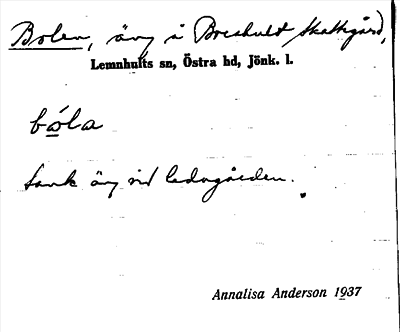 Bolen, äng å Breshult Skattegård,
Lemnhults sn, Östra hd, Jönk. l.
bóla
Sank äng vid ladugården.
Annalisa Anderson 1937